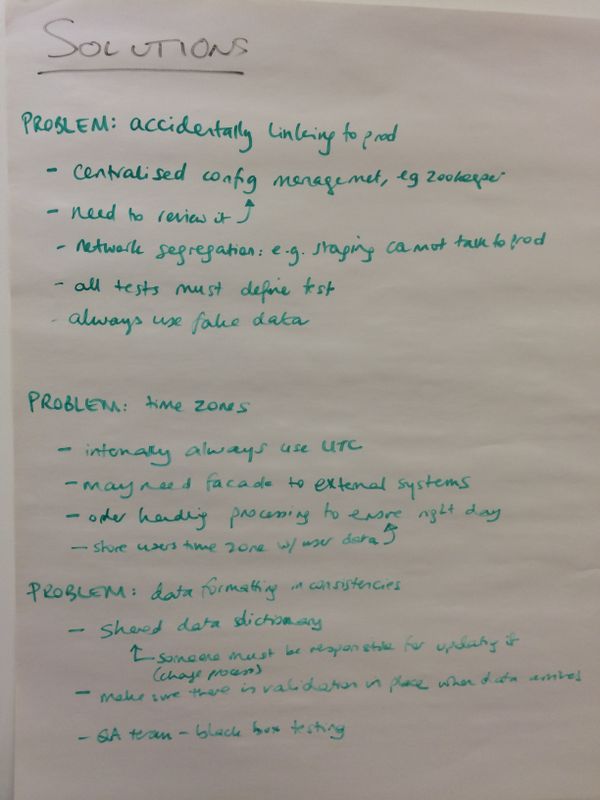 SOLUTIONS
PROBLEM: accidentally linking to prod
- centralised config management, eg zookeeper
- need to review it
- network segregation: e.g. staging cannot talk to prod
- all tests must define test
- always use fake data
PROBLEM: time zones
- internally always use UTC
- may need facade to external systems
- order handling processing to ensure right day
- store users time zone w/ user data
PROBLEM: data formatting inconsistencies
- shared data dictionary
someone must be responsible for updating it
(change process)
- make sure there is validation in place when data arrives
- QA team - black box testing